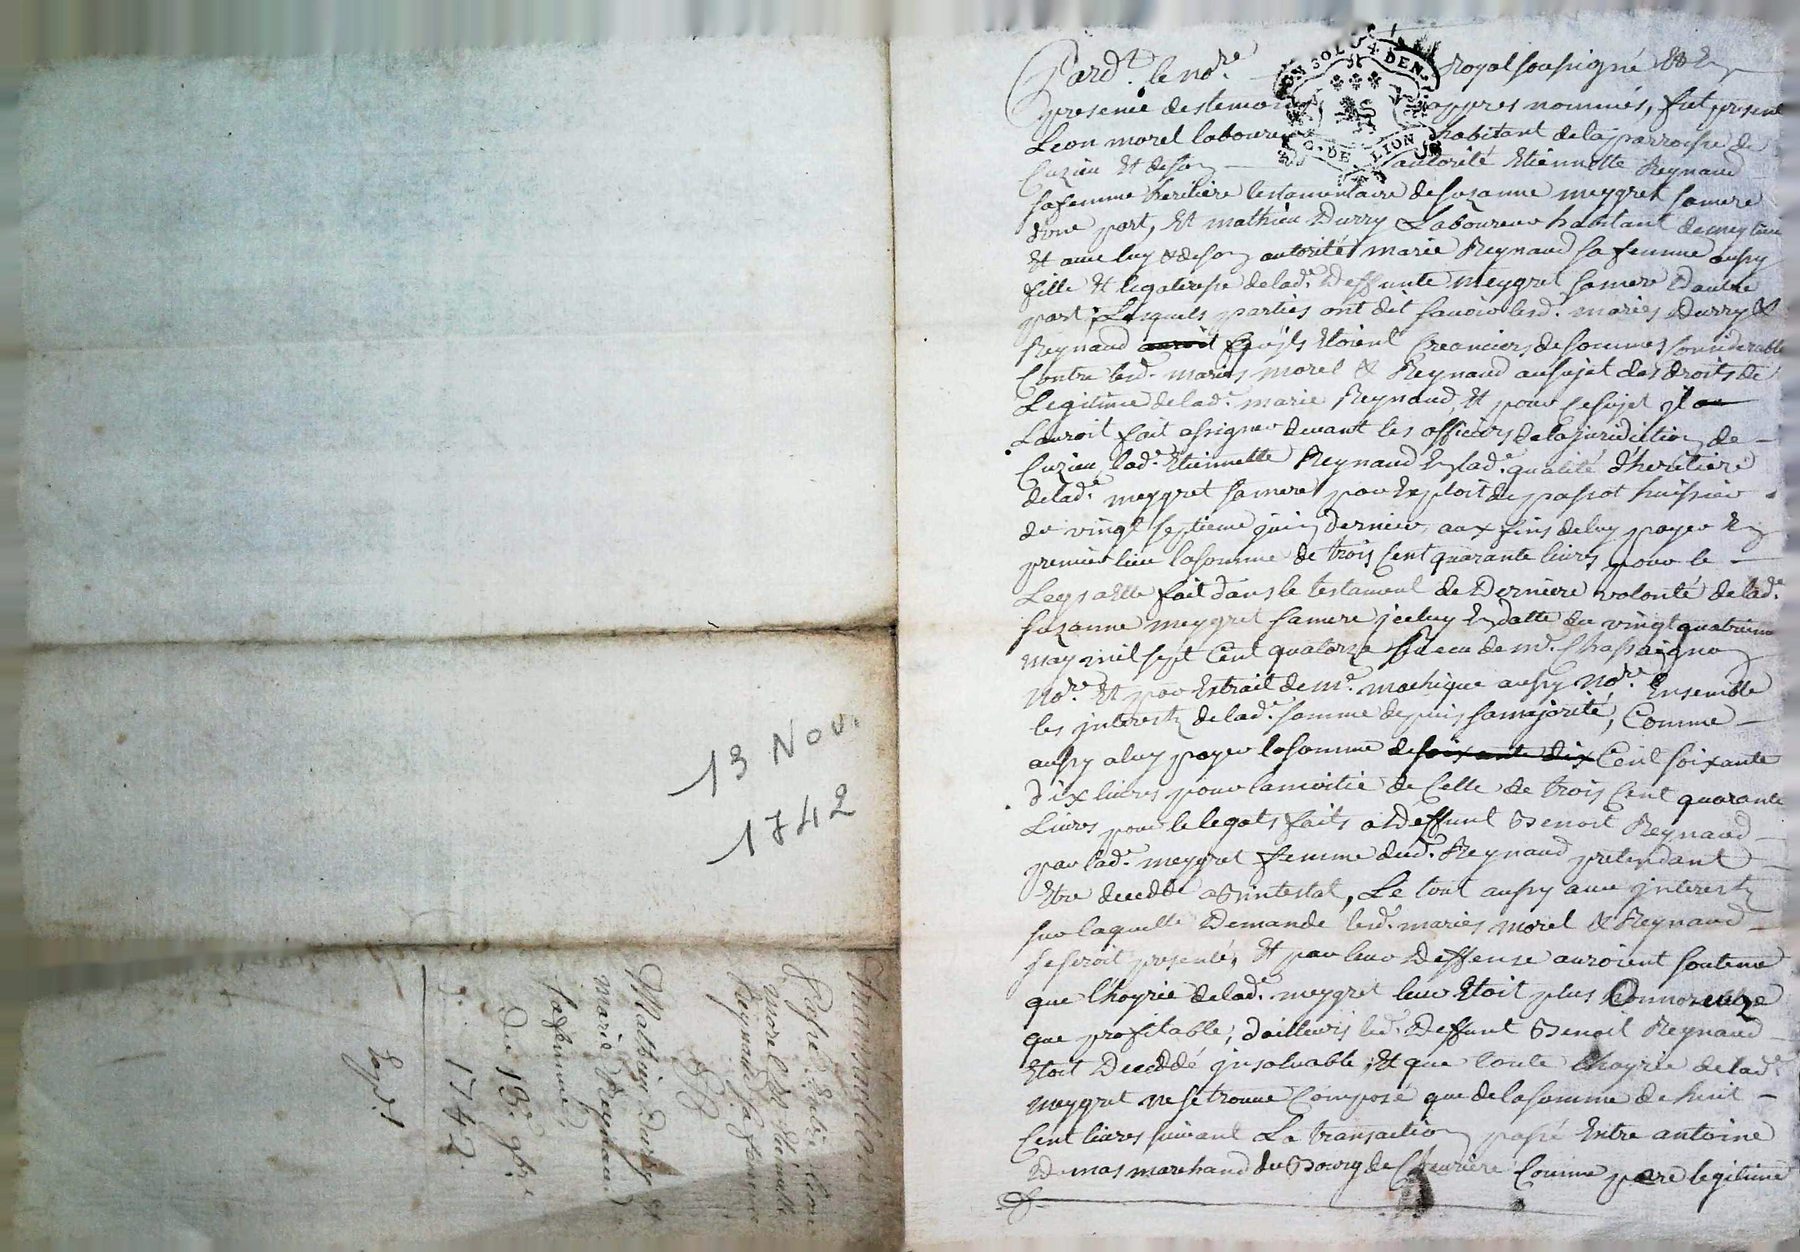 13 Nov.
1742
Transaction
Passé Entre leon
morel & Etiennette
Reynaud sa femme
&
Mathieu Durry et
marie Reynaud
sa femme
Du 13e 9bre
1742.
Pard.t le no.re royal soussigné & en
presence des temoins appres nommés, fut present
Leon morel laboureur habitant de la parroisse de
Cuzieu Et de son autorité Etiennette Reynaud
sa femme heritiere testamentaire de suzanne meygret sa mere
d'une part, Et mathieu Durry Laboureur habitant de meylieu
Et avec luy & de son autorité marie Reynaud sa femme aussy
fille & legateresse de lad.e Deffunte meygret sa mere D'autre
part, Lesquels parties ont dit sçavoir lesd. mariés Durry &
Reynaud qu'ils Etoient Creanciers de sommes considerable
Contre lesd. mariés morel & Reynaud au sujet des droits de
Legitime de lad.e marie Reynaud, Et pour ce sujet il
L'auroit fait assigner devant les officiers de la juridiction de
Cuzieu lad.e Etiennette Reynaud En lad.e qualité d'heritiere
de lad.e meygret sa mere par Exploit de passot huissier
du vingt septieme juin dernier, aux fins de luy payer En
premier lieu la somme de trois cent quarante livres pour le
Legs a Elle fait dans le testament de Derniere volonté de lad.e
suzanne meygret sa mere iceluy En datte du vingt quatrieme
may mil sept cent quatorze Receu de m.e Chassaigno
No.re Et par Extrait de m.e machique aussy No.re Ensemble
les interests de lad.e somme depuis sa majorité, Comme
aussy a luy payer la somme de soixante dix Cent soixante
dix livres pour la moitié de Celle de trois Cent quarante
Livres pour le legats faits a Deffunt Benoit Reynaud
par lad.e meygret femme dud. Reynaud pretendant
Etre decedé abintestat, Le tout aussy avec interests
sur laquelle Demande lesd. mariés morel & Reynaud
se seroit presenté, Et par leur Deffense auroient soutenu
que l'hoyrie de lad.e meygret leur Etoit plus honnoreuze
que profitable; d'ailleurs led. Deffunt Benoit Reynaud
Etoit Decedé insolvable, Et que toute l'hoyrie de lad.e
meygret ne se trouve Composé que de la somme de huit
Cent livres suivant La transaction passé Entre antoine
Dumas marchand du Bourg de Chevriere Comme pere legitime